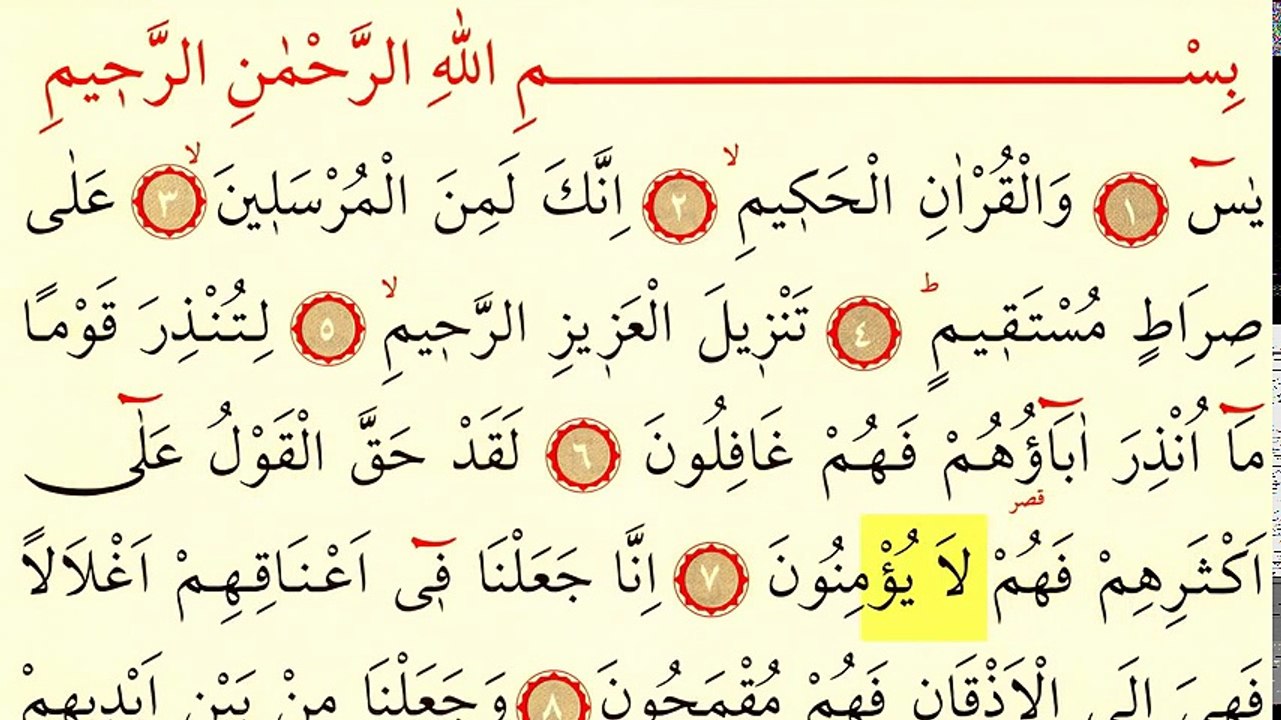 بِسْـــــــــمِ اللّٰهِ الرَّحْمٰنِ الرَّح۪يمِ
يٰسٓ ﴿١﴾ وَالْقُرْاٰنِ الْحَك۪يمِۙ ﴿٢﴾ اِنَّكَ لَمِنَ الْمُرْسَل۪ينَۙ ﴿٣﴾ عَلٰى
صِرَاطٍ مُسْتَق۪يمٍۜ ﴿٤﴾ تَنْز۪يلَ الْعَز۪يزِ الرَّح۪يمِۙ ﴿٥﴾ لِتُنْذِرَ قَوْمًا
مَٓا اُنْذِرَ اٰبَٓاؤُ۬هُمْ فَهُمْ غَافِلُونَ ﴿٦﴾ لَقَدْ حَقَّ الْقَوْلُ عَلٰٓى
قصر
اَكْثَرِهِمْ فَهُمْ لَا يُؤْمِنُونَ ﴿٧﴾ اِنَّا جَعَلْنَا ف۪ٓي اَعْنَاقِهِمْ اَغْلَالًا
فَهِيَ اِلَى الْاَذْقَانِ فَهُمْ مُقْمَحُونَ ﴿٨﴾ وَجَعَلْنَا مِنْ بَيْنِ اَيْد۪يهِمْ